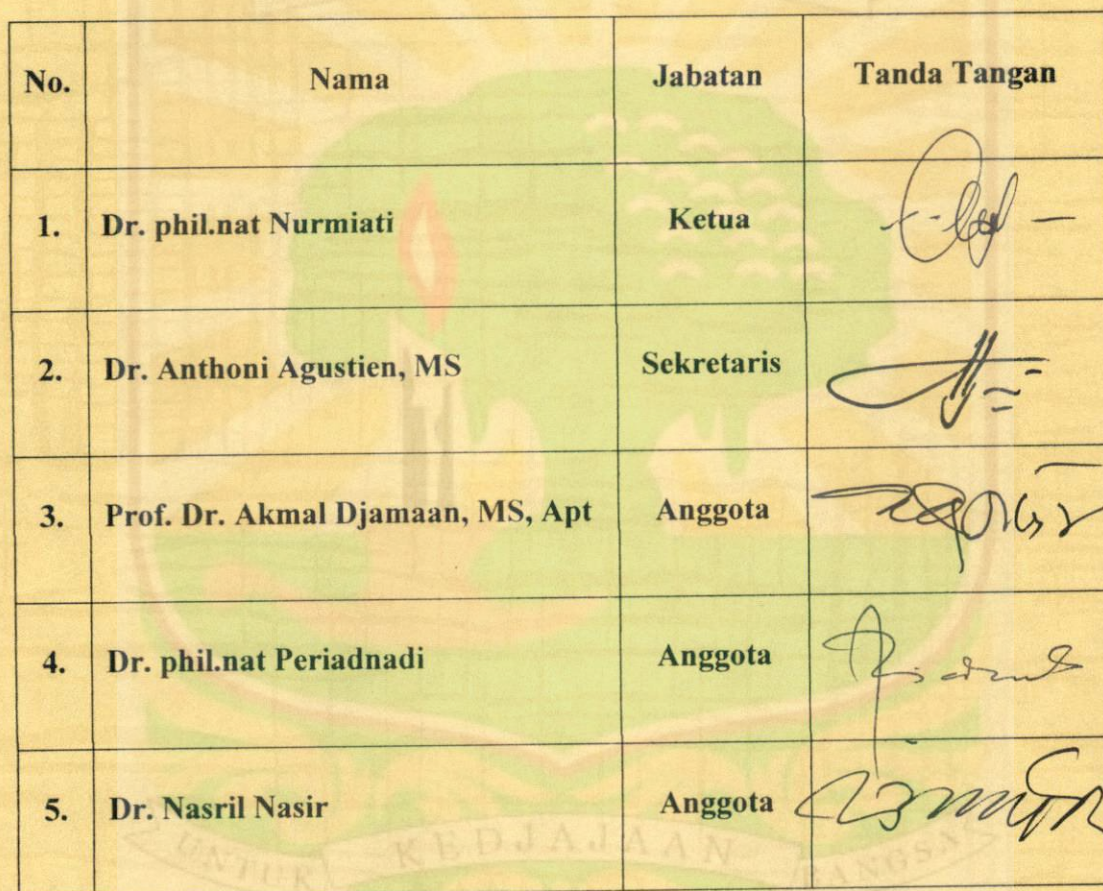 No. Nama Jabatan Tanda Tangan
1. Dr. phil.nat Nurmiati Ketua
2. Dr. Anthoni Agustien, MS Sekretaris
3. Prof. Dr. Akmal Djamaan, MS, Apt Anggota
4. Dr. phil.nat Periadnadi Anggota
5. Dr. Nasril Nasir Anggota
UNTUK KEDJAJAAN BANGSA